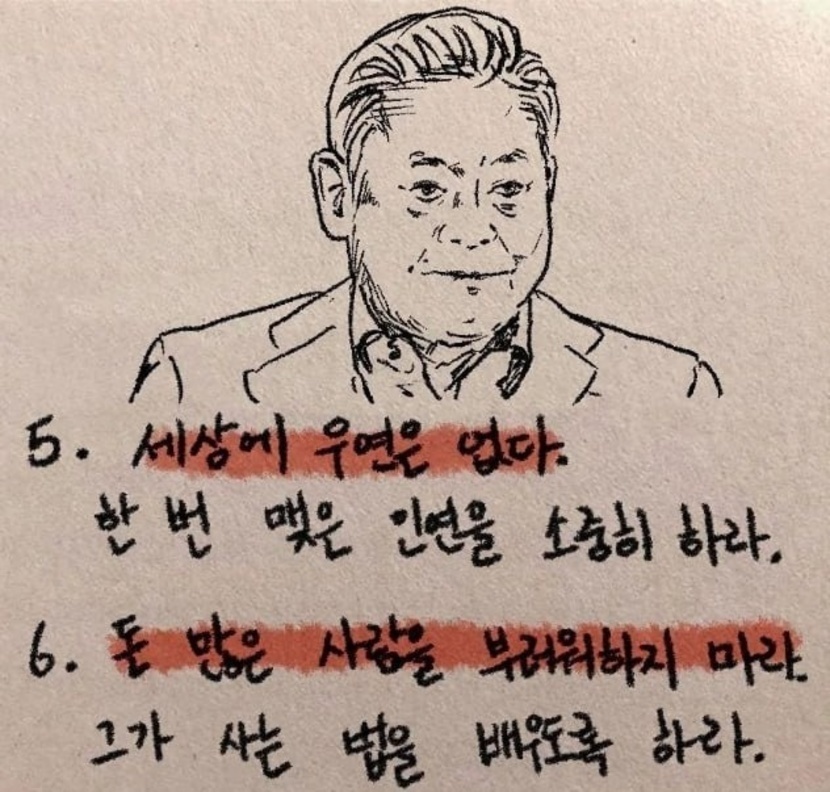 5. 세상에 우연은 없다.
한 번 맺은 인연을 소중히 하라.
6. 돈 많은 사람을 부러워하지 마라.
그가 사는 법을 배우도록 하라.